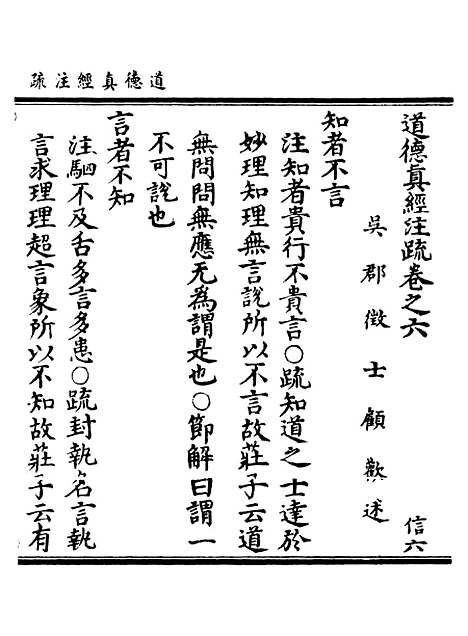 道德真經注疏
道德真經注疏卷之六
信六
吳郡徵士顧歡述
知者不言
注知者貴行不貴言○疏知道之士達於
妙理知理無言說所以不言故莊子云道
無問問無應无為謂是也○節解曰謂一
不可說也
言者不知
注駟不及舌多言多患○疏封執名言執
言求理理超言象所以不知故莊子云有